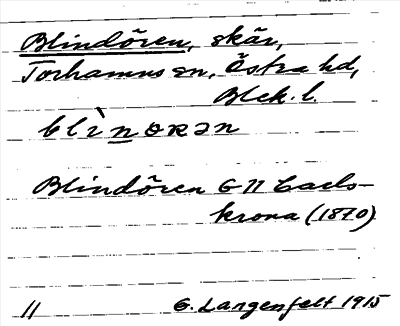 Blindören, skär,
Torhamns sn, Östra hd,
Blek. l.
blìnoʀən
Blindören G II Carls-
krona (1870)
11 G. Langenfelt 1915